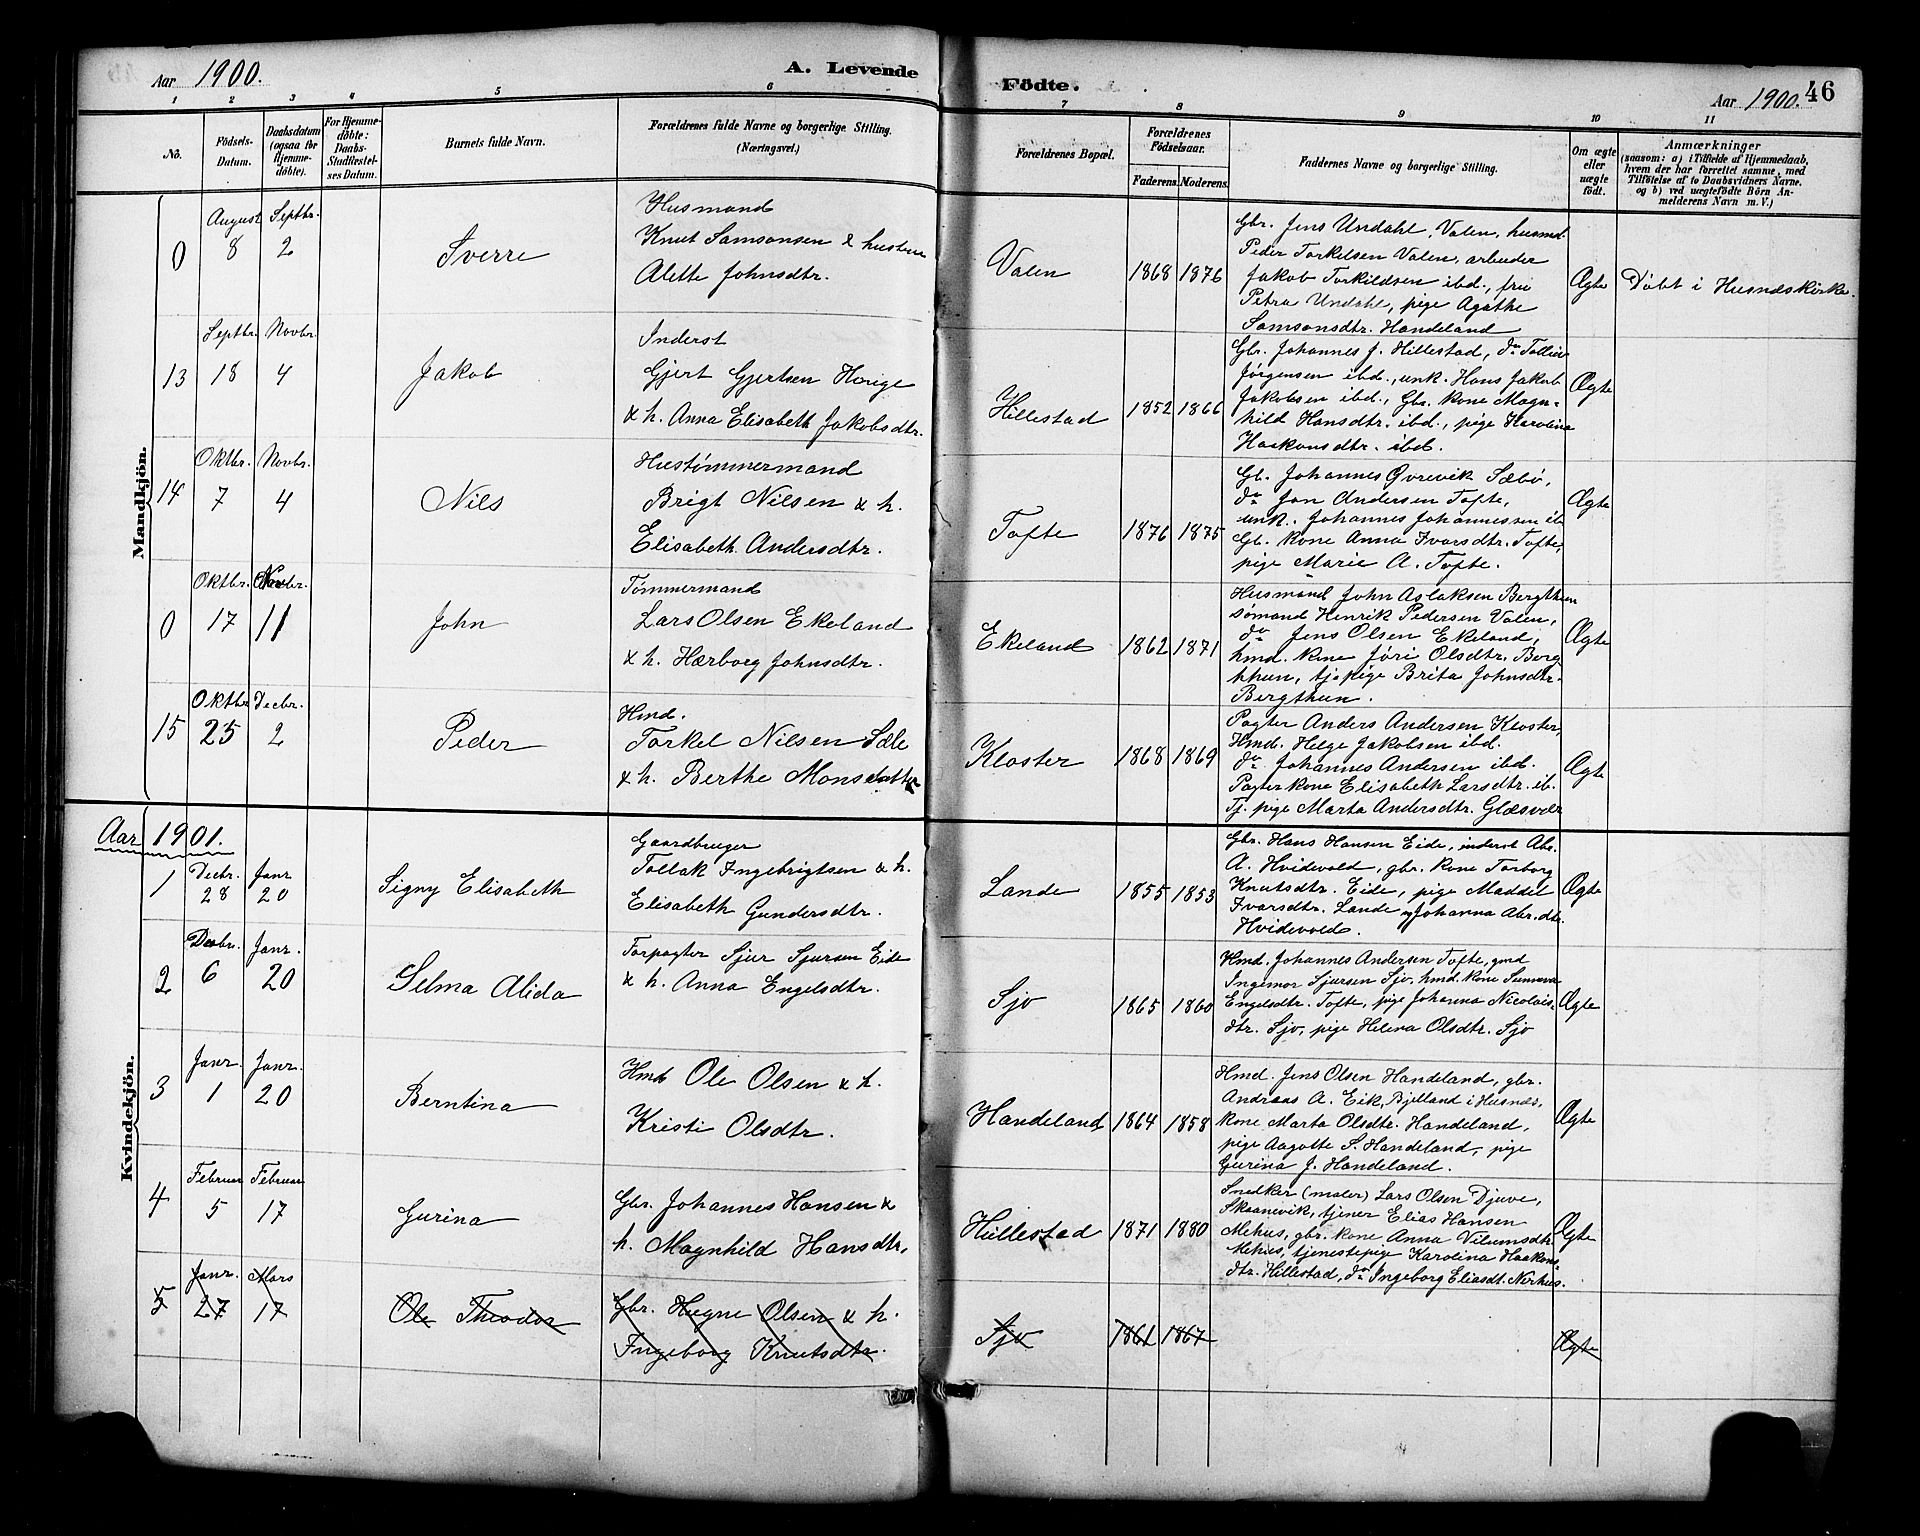 Aar 1900. A. Levende Födte. Aar 1900. 46
1 2 3 4 5 6 7 8 9 10 11
No.
Födsels-
Datum.
Daabsdatum
(ogsaa for
Hjemme-
döbte).
For Hjemme-
döbte:
Daabs-
Stadfæstel-
ses Datum.
Barnets fulde Navn.
Forældrenes fulde Navne og borgerlige Stilling.
(Næringsvei.)
Forældrenes Bopæl.
Forældrenes
Födselsaar.
Faderens. Moderens.
Faddernes Navne og borgerlige Stilling.
Om ægte
eller
uægte
födt.
Anmærkninger
(saasom: a) i Tilfælde af Hjemmedaab,
hvem der har forrettet samme, med
Tilföielse af to Daabsvidners Navne.
og b) ved uægtefödte Börn An-
melderens Navn m. V.)
Mandkjön.
0
August Septbr.
8 2
Sverre
Husmand
Knut Samsonsen & hustru
Alette Johnsdtr.
Valen
1868 1876
Gbr. Jens Undahl, Valen, husmd.
Peder Torkelsen Valen, arbeider
Jakob Torkildsen ibd., fru
Petra Undahl, pige Agathe
Samsonsdtr. Handeland
Ægte
Døbt i Husnæs kirke.
13
Septbr. Novbr.
18 4
Jakob
Inderst
Gjert Gjertsen Høige
& h. Anna Elisabeth Jakobsdtr.
Hillestad
1852 1866
Gbr. Johannes J. Hillestad, do Tolliv
Jørgensen ibd., unk. Hans Jakob
Jakobsen ibd., Gbr. kone Magn-
hild Hansdtr. ibd., pige Karolina
Haakonsdtr. ibd.
Ægte
14
Oktbr. Novbr.
7 4
Nils
Hustømmermand
Brigt Nilsen & h.
Elisabeth Andersdtr.
Tofte
1876 1875
Gb. Johannes Øvrevik Sæbø,
do Jon Andersen Tofte,
unk. Johannes Johannessen ib
Gb. kone Anna Ivarsdtr. Tofte,
pige Marie A. Tofte.
Ægte
0
Oktbr. Novbr.
17 11
John
Tømmermand
Lars Olsen Ekeland
& h. Hærborg Johnsdtr.
Ekeland
1862 1871
Husmand John Aslaksen Bergthun
sømand Henrik Pedersen Valen,
do Jens Olsen Ekeland,
hmd. kone Jøri Olsdtr. Berg
thun, tj. pige Brita Johnsdtr.
Bergthun.
Ægte
15
Oktbr Decbr.
25 2
Peder
Hmd.
Torkel Nilsen Sæle
& h. Berthe Monsdatter
Kloster
1868 1869
Pagter Anders Andersen Kloster,
Hmd. Helge Jakobsen ibd.
do Johannes Andersen ibd.
Pagter kone Elisabeth Larsdtr. ib.
Tj. pige Marta Andersdtr. Glæsvær
Ægte
Aar 1901.
Kvindekjön.
1
Decbr. Janr.
28 20
Signy Elisabeth
Gaardbruger
Tollak Ingebrigtsen & h.
Elisabeth Gundersdtr.
Lande
1855 1853
Gbr. Hans Hansen Eide, inderst Abr.
A. Hvidevold, gbr. kone Torborg
Knutsdtr. Eide, pige Maddel
Ivarsdtr. Lande, Johanna Abr.dtr.
Hvidevold.
Ægte
2
Decbr. Janr.
6 20
Selma Alida
Forpagter Sjur Sjursen Eide
& h. Anna Engelsdtr.
Sjo
1865 1860
Hmd. Johannes Andersen Tofte, gmd
Ingemor Sjursen Sjo, hmd. kone Sunneva
Engelsdtr. Tofte, pige Johanna Nicolais-
dtr. Sjo, pige Helena Olsdtr. Sjo
Ægte
3
Janr. Janr.
1 20
Berntina
Hmd Ole Olsen & h.
Kristi Olsdtr.
Handeland
1864 1858
Hmd. Jens Olsen Handeland, gbr.
Andreas A. Eik, Bjelland i Husnæs,
kone Marta Olsdtr. Handeland,
pige Aagotte S. Handeland, pige
Gurina J. Handeland.
Ægte
4
Februar Februar
5 17
Gurina
Gbr. Johannes Hansen &
h. Magnhild Hansdtr.
Hillestad
1871 1880
Snedker (maler) Lars Olsen Djuve,
Skaanevik, tjener Elias Hansen
Mehus, gbr. kone Anna Vilumsdtr.
Mehus, tjenestepige Karolina Haakons-
dtr. Hillestad, do Ingeborg Eliasdt. Nerhus.
Ægte
5
Janr. Mars
27 17
Ole Theodor
Gbr. Hugne Olsen & h.
Ingeborg Knutsdtr.
Sjo
1861 1867
Ægte